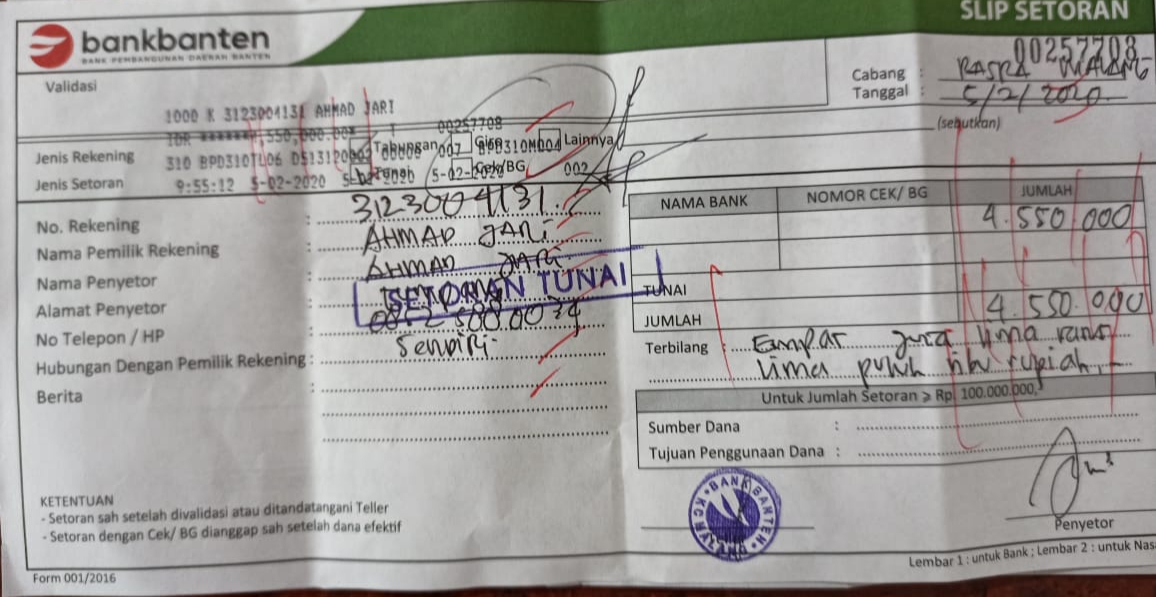 SLIP SETORAN
bankbanten
BANK PEMBANGUNAN DAERAH BANTEN
00257708
Validasi
Cabang :
Tanggal : 5/2/2020
(sebutkan)
1000 K 3123004131 AHMAD JARI
IDR ,550,000.00*
00257708
Jenis Rekening Tabungan Giro Lainnya
310 BPD310TL06 DS13120 00006 007 BPD310M004
Jenis Setoran Tunai Cek/BG
9:55:12 5-02-2020 5-02-2020 002
No. Rekening : 3123004131
Nama Pemilik Rekening : AHMAD JARI
Nama Penyetor : AHMAD JARI
Alamat Penyetor :
SETORAN TUNAI
No Telepon / HP :
Hubungan Dengan Pemilik Rekening : Sendiri.
Berita :
NAMA BANK NOMOR CEK/ BG JUMLAH
4.550.000
TUNAI
JUMLAH 4.550.000
Terbilang : Empat juta lima ratus
lima puluh ribu rupiah,-
Untuk Jumlah Setoran ≥ Rp. 100.000.000,-
Sumber Dana :
Tujuan Penggunaan Dana :
BANK BANTEN
KC MALANG
Penyetor
KETENTUAN
- Setoran sah setelah divalidasi atau ditandatangani Teller
- Setoran dengan Cek/ BG dianggap sah setelah dana efektif
Lembar 1 : untuk Bank ; Lembar 2 : untuk Nas
Form 001/2016